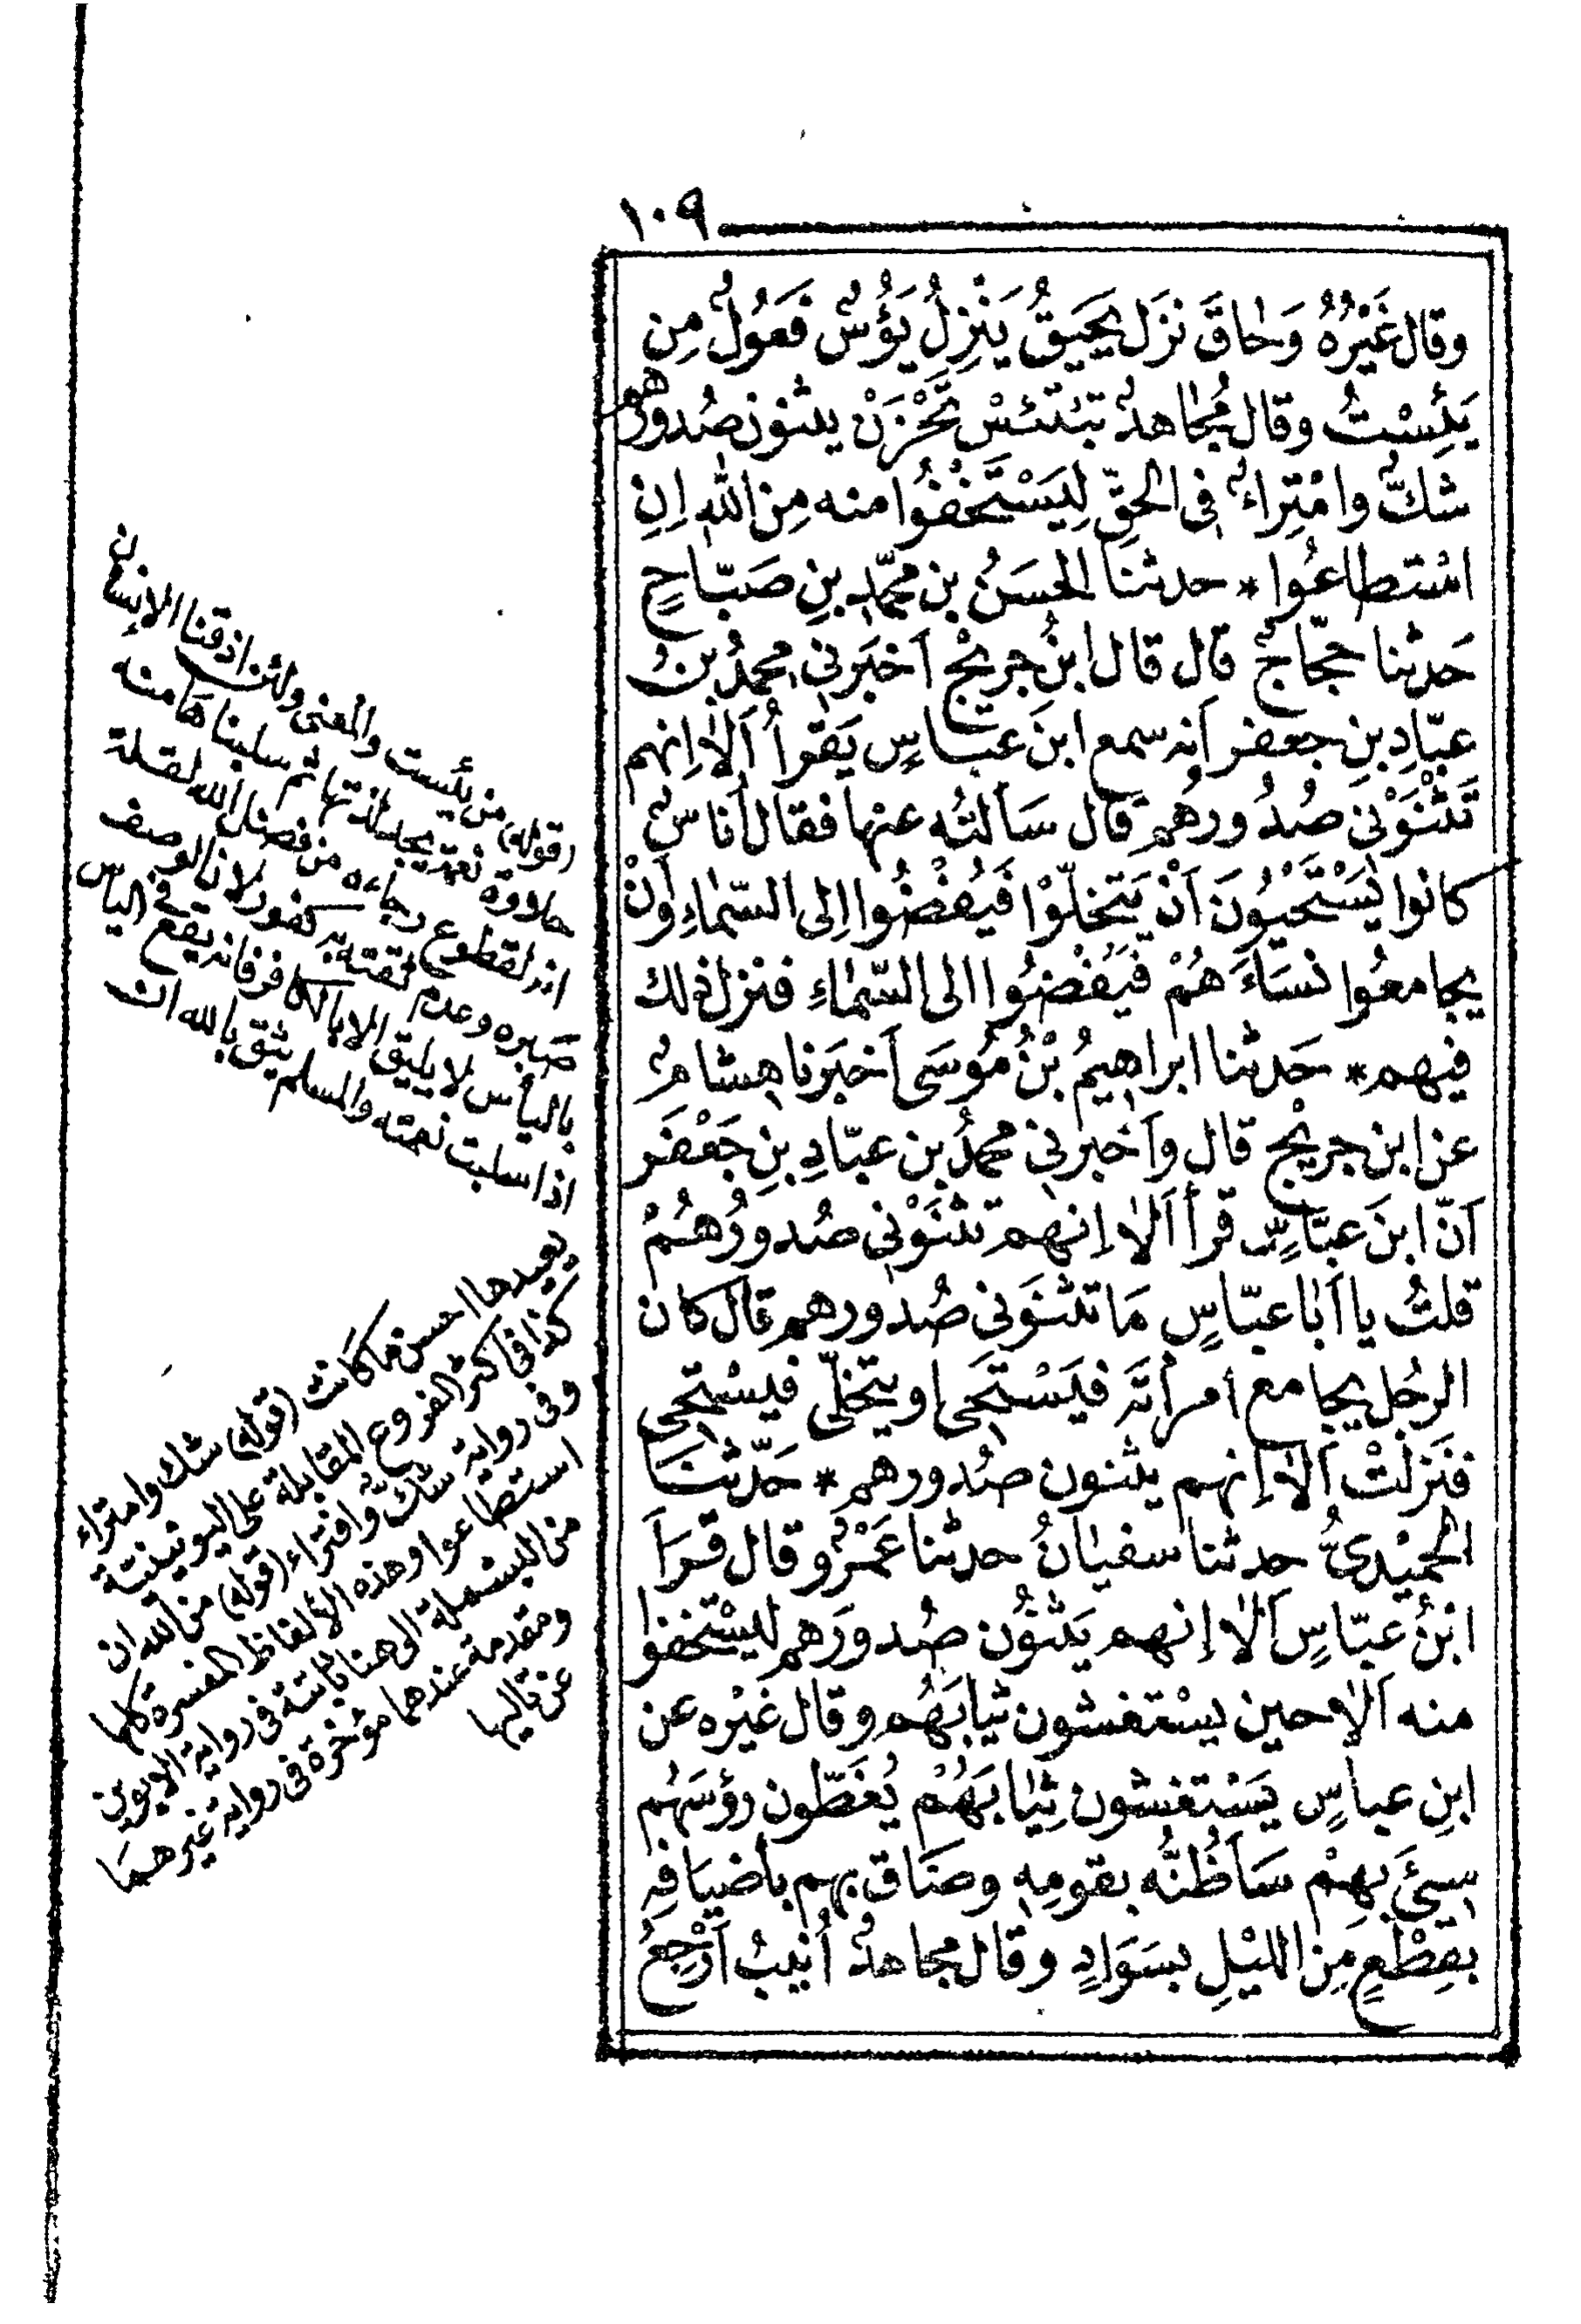 ١٠٩
وقال غَيْرُهُ وَحَاقَ نَزَل يَحِيقُ يَنْزِلُ يَؤُسٌ فَعُولٌ مِن
يَئِسْتُ وقال مُجَاهدٌ تَبْتَئِسْ تَحْزَنْ يثنون صُدورهم
شكٌّ وامْتِراءٌ في الحقِّ لِيَسْتَخْفُوا منه مِنَ اللهِ اِنِ
اسْتطاعُوا * حدثنا الحسَنُ بن محمّدِ بنِ صَبَّاحٍ
حَدثنا حجّاجٌ قال قال ابنُ جريْجٍ اَخبَرَنى محمدُ بنُ
عبّادِ بنِ جعفر اَنه سمع ابنَ عبّاسٍ يَقرأُ اَلاَ اِنهم
تَثْنَوْنِى صُدُورُهم قال سَألتُه عنها فقال اُناسٌ
كانوا يَسْتَحْيُونَ اَنْ يَتَخلّوْا فَيُفْضُوا اِلى السّمَاءِ وَاَنْ
يجامعُوا نسَاءَهُمْ فَيُفْضُوا الى السّمَاءِ فنزل ذلك
فيهم * حَدثنا ابراهيمُ بْنُ مُوسَى اَخبَرنا هشامٌ
عن ابن جريْج قال وَاَخبرنى محمدُ بن عبّادِ بنِ جَعْفَر
اَنّ ابنَ عبّاسٍ قرأ اَلاَ اِنهم تثْنَوْنِى صُدورُهُمْ
قلتُ يا اَبَا عبّاسٍ مَا تثنَوْنى صُدورهم قال كان
الرجُل يجامع امرأتَه فيَسْتَحِى او يتخلّى فيسْتحِى
فنَزلَتْ اَلاَ اِنهم يثنون صُدورهم * حَدّثنَا
الحُمَيْدىُّ حدثنا سفيَانُ حدثنا عَمْرٌو قال قَرَأَ
ابْنُ عبّاسٍ اَلاَ اِنهم يَثنُون صُدورَهم ليسْتخفوا
منه اَلاَ حين يسْتغشون ثيابَهُم وقال غيْره عن
ابنِ عباسٍ يَسْتغشون ثِيَابَهُمْ يُغَطّون رؤسَهُم
سِىءَ بهِمْ سَاَ ظَنُّه بقومِهِ وضَاق بهم بأضيَافِهِ
بقِطْعٍ مِنَ الليْلِ بسَوَادٍ وقال مجاهدٌ اُنيبُ اَرْجِعُ
(قوله) من يئست والمعنى ولئن اذقنا الانسان
حلاوة نعمة يجد لذتها ثم سلبناها منه
انه لقطوع رجاءه من فضل الله لقلة
صبره وعدم ثقته به كفور لان الوصف
باليأس لا يليق الا بالكافر فانه يقع في اليأس
اذا سلبت نعمته والمسلم يثق بالله ان
يعيدها احسن مما كانت (قوله) شك وامتراء
كذا فى اكثر الفروع المقابلة على اليونينية
وفى رواية شكٌّ وافتراء (قوله) من الله ان
استطاعوا وهذه الألفاظ المفسرة كلها
من البسملة الى هنا ثابتة فى رواية الابوين
ومتقدمة عندهما مؤخرة فى رواية غيرهما
عن تاليها